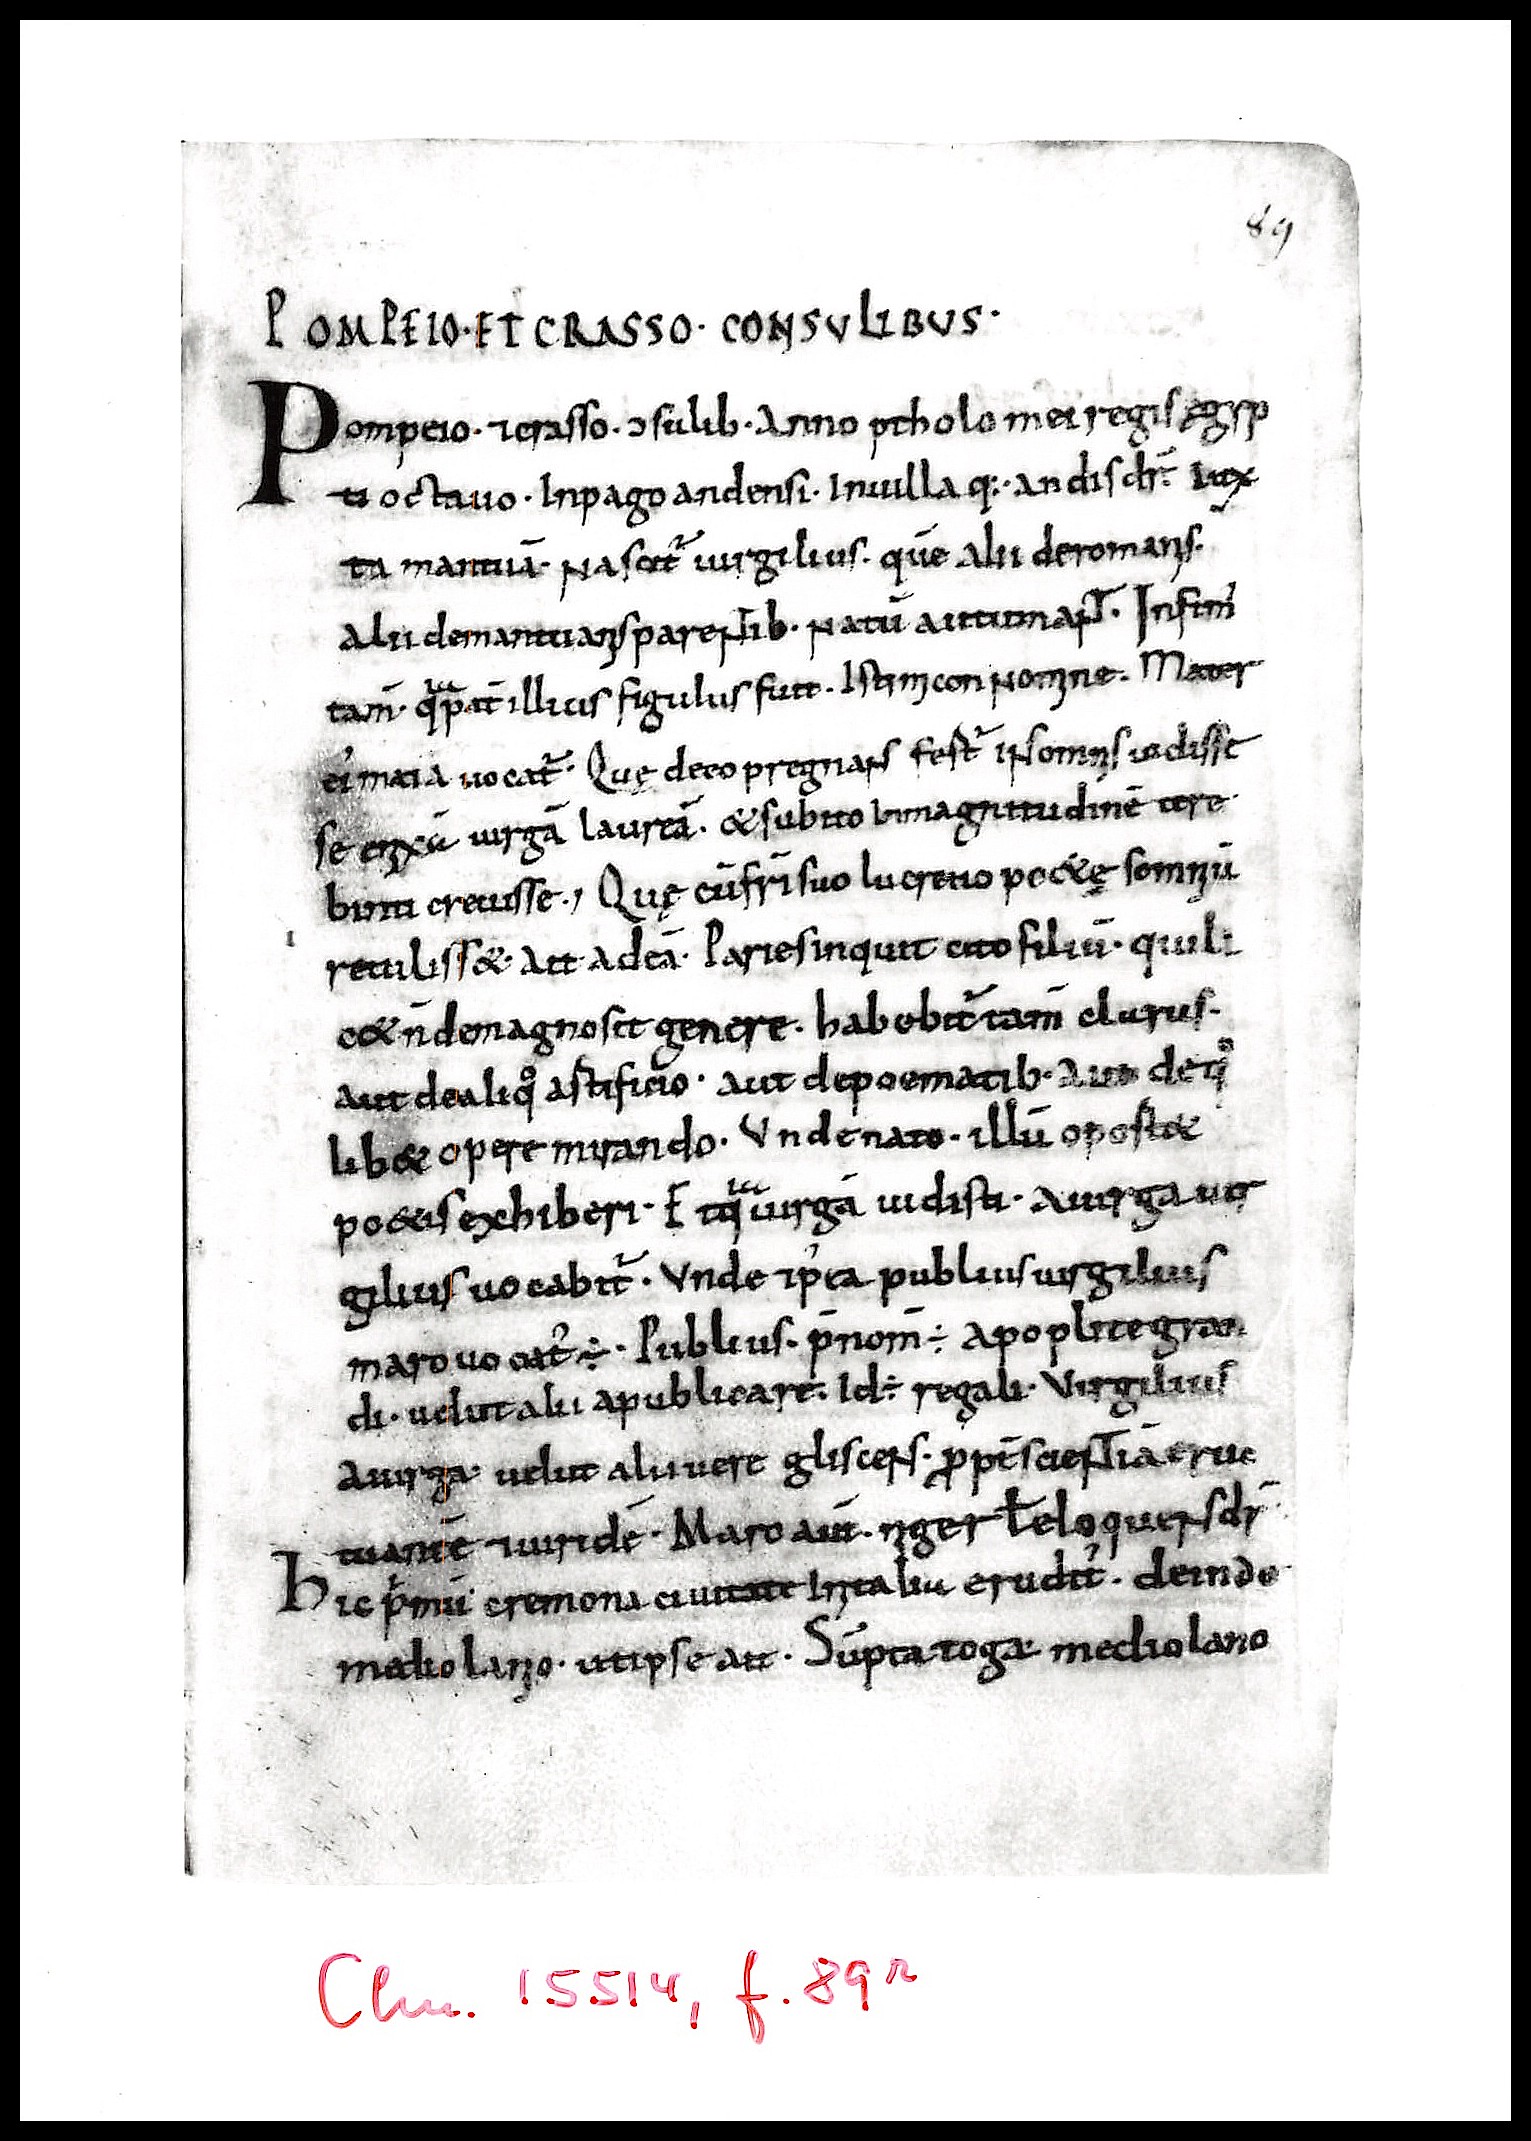 89
POMPEIO·ET CRASSO· CONSULIBUS·
Pompeio· ⁊crasso· ɔsulib· Anno ptholomei regis egyp
ti octauo· Inpago andensi· Inuilla q:· andis dr̄· iux
ta mantuā· Nascit᷑ uirgilius· quē alii deromanis·
alii demantuanis parentib· Natū autumant̄· Infim᾽
tam̄· qͣ pat̄ illius figulus fuit· Istimicon Nomine· Mater
ei᾽ maia uocat᷑· Quę deeo pregnans fert᷑ insomnis uidisse
se enixā uirgā laureā· &subito Inmagnitudinē
creuisse·, Quę cū fr̄i suo lucretio po&ę somniū
retuliss&· ait adeā· Paries inquit cito filiū· quili
c& n̄ demagno sit genere· habebit᷑ tam̄ clarus·
aut dealiqͦ artificio· aut depoematib· aut de qͦ
lib& opere mirando· Unde nato· illū oport&
po&is exhiberi· Et qͣ uirgā uidisti· auirga uir
gilius uocabit᷑· Unde ip᾽ea publius uirgilius
maro uocat᾽ ÷· Publius· p̄nom̄ ÷ apoplite gran
di· uelut alii apublicare· Id÷ regali· Virgilius
auirga· uelut alii uere gliscens· ꝓpt̄ scientiā
tuantē ⁊uiridē· Maro aūt· niger ł eloquens dr̄·
Hic p̄mū cremona ciuitate Initalia erudit᾽· deinde
mediolano· utipse ait· Sūpta toga mediolano
Clm. 15514, f. 89r